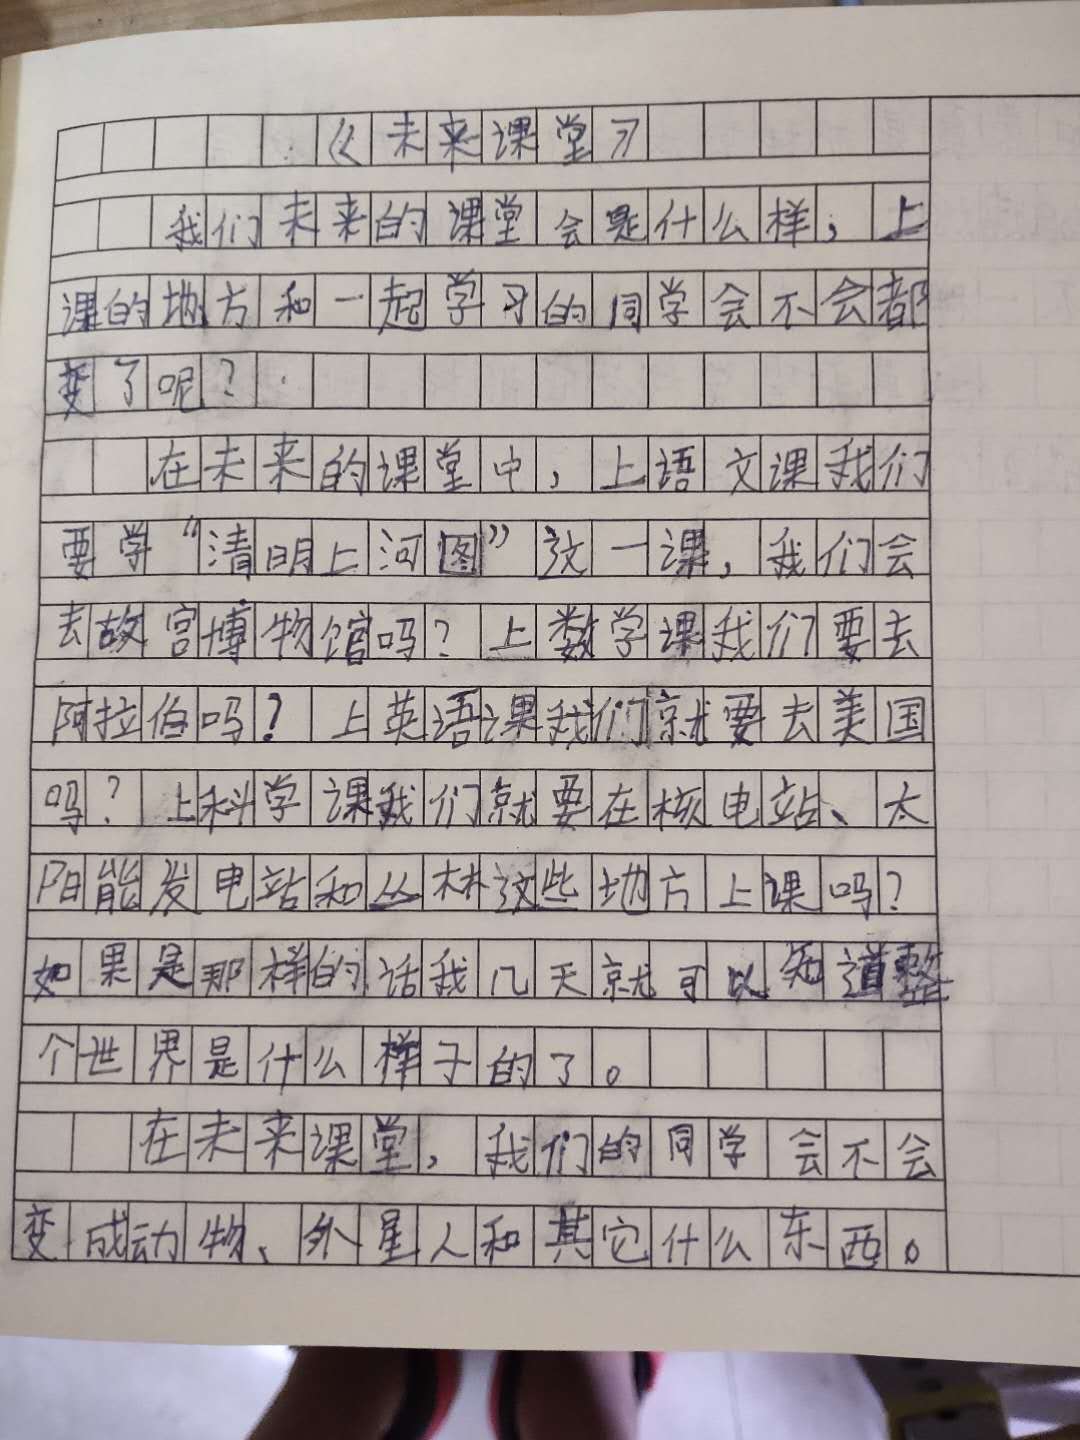 《未来课堂》
我们未来的课堂会是什么样，上
课的地方和一起学习的同学会不会都
变了呢？
在未来的课堂中，上语文课我们
要学“清明上河图”这一课，我们会
去故宫博物馆吗？上数学课我们要去
阿拉伯吗？上英语课我们就要去美国
吗？上科学课我们就要在核电站、太
阳能发电站和丛林这些地方上课吗？
如果是那样的话我几天就可以知道整
个世界是什么样子的了。
在未来课堂，我们的同学会不会
变成动物、外星人和其它什么东西。